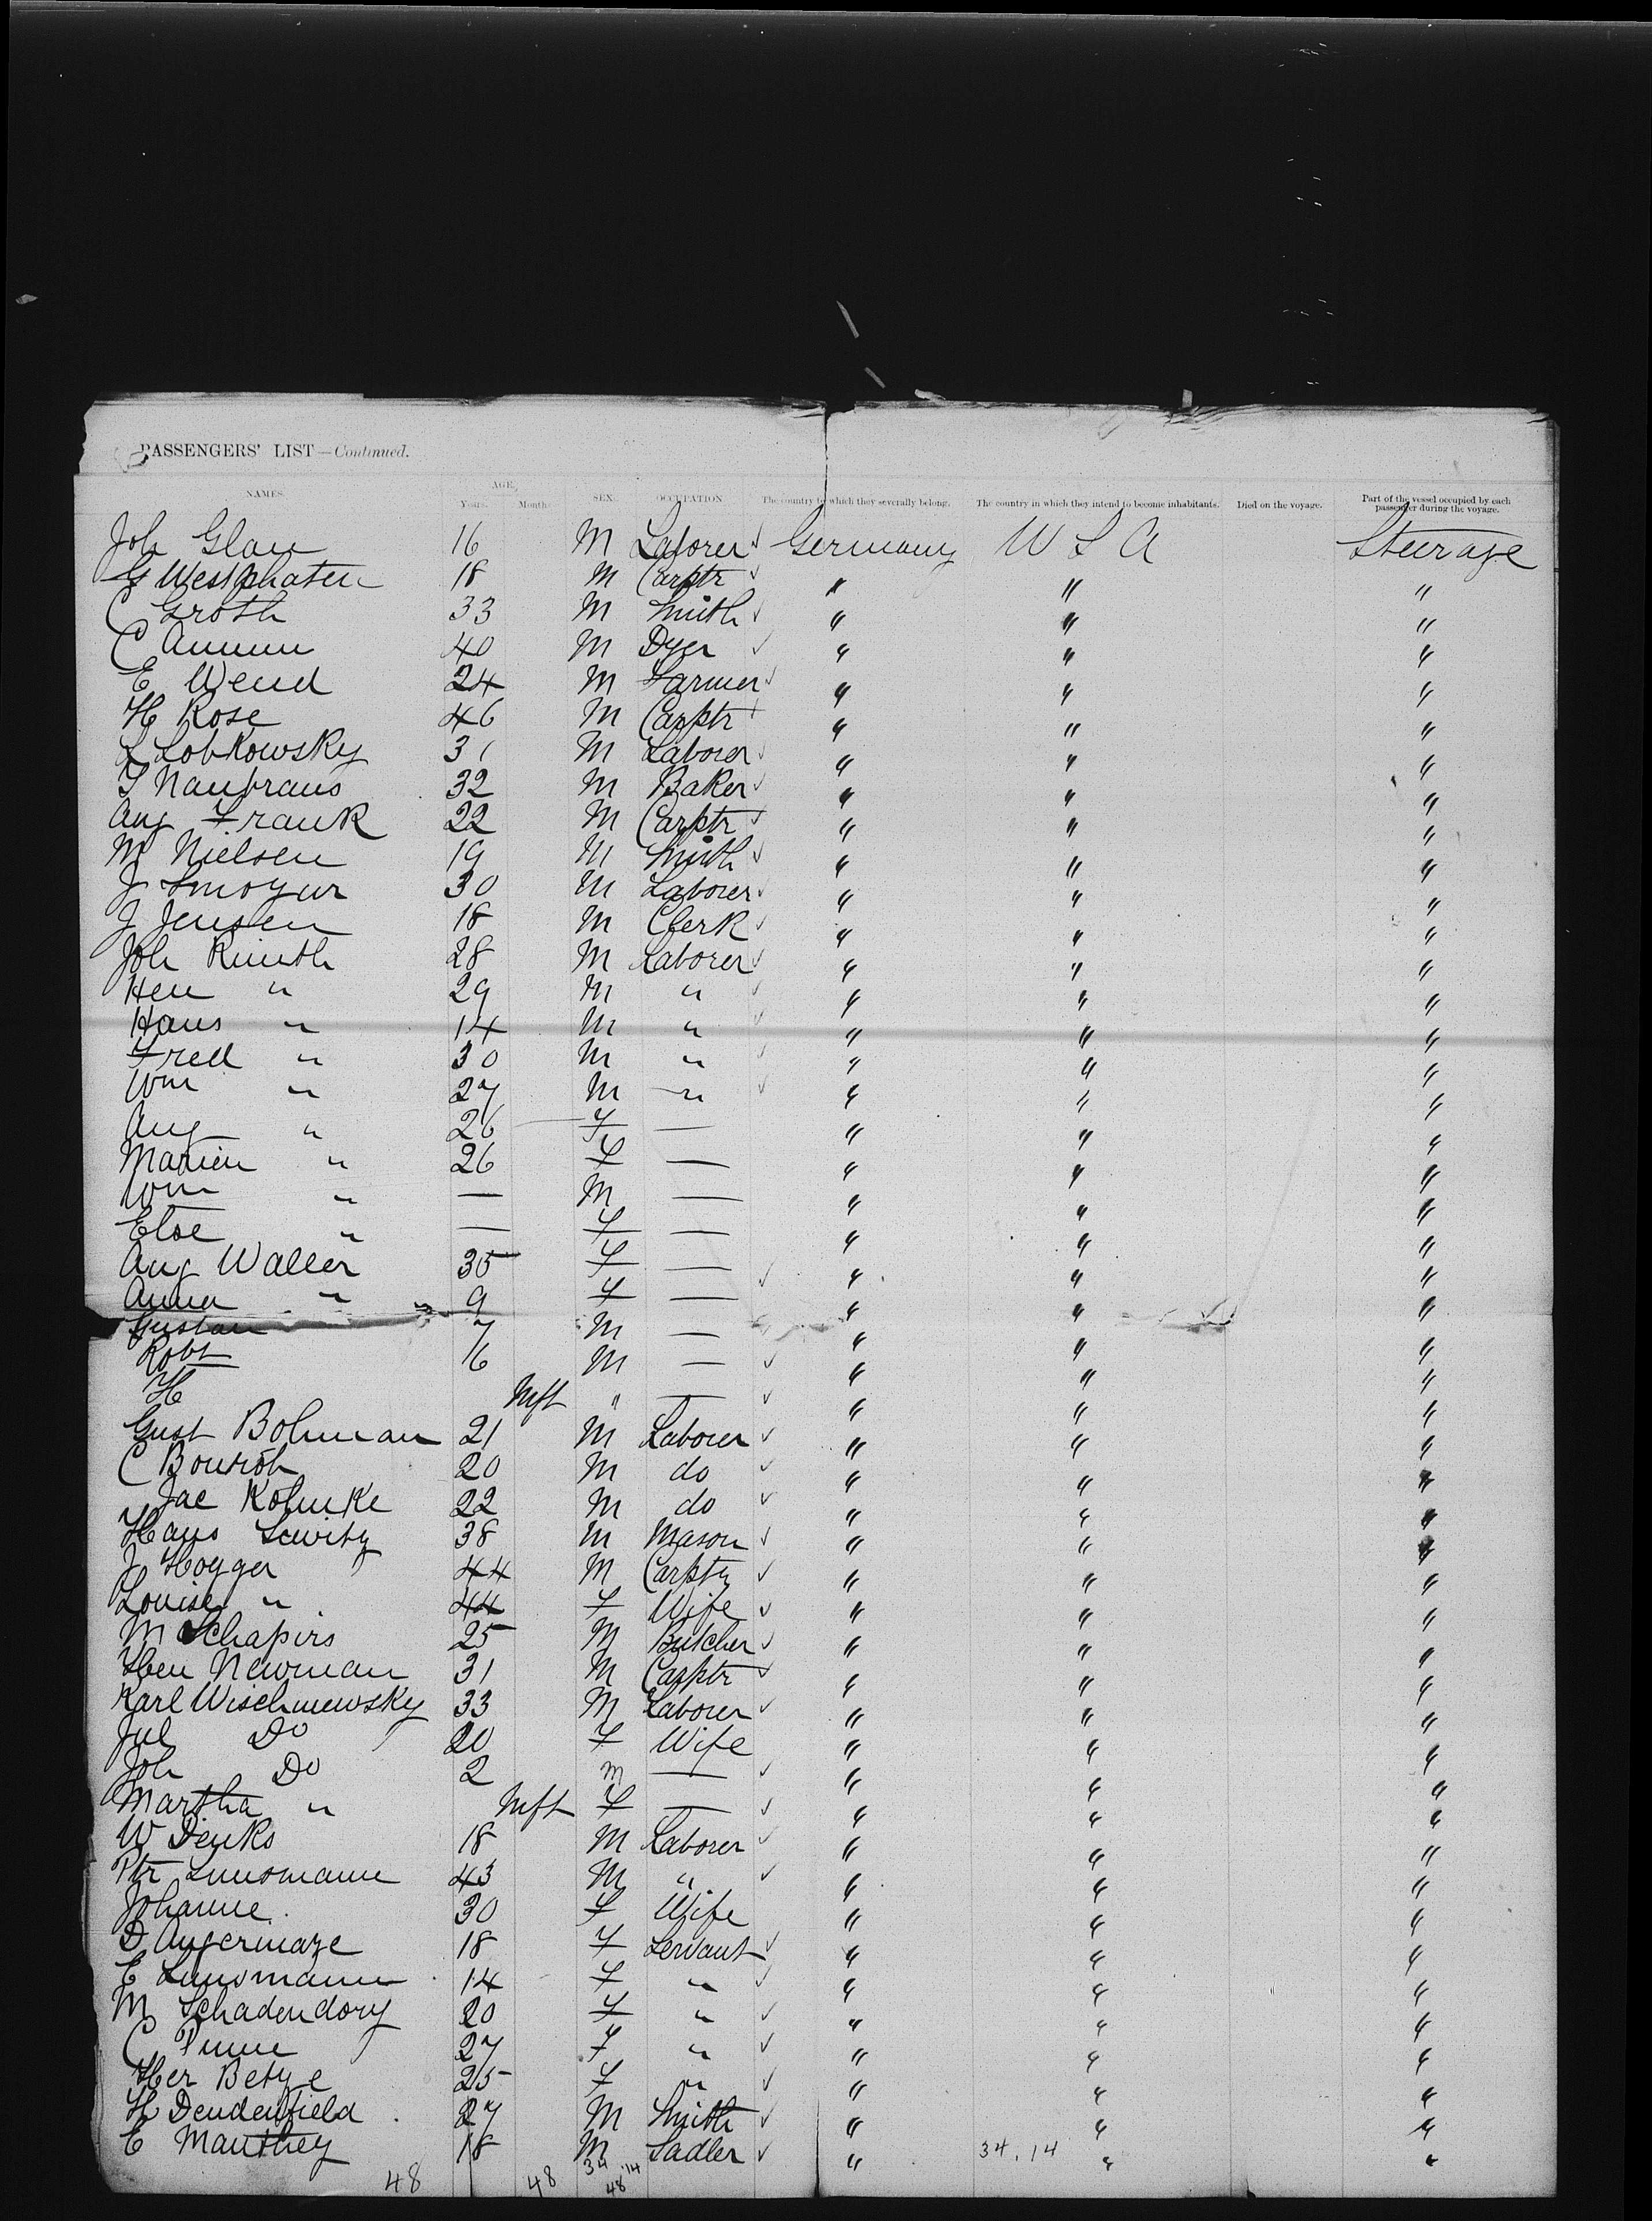 PASSENGERS' LIST—Continued.
NAMES. AGE, Years. Month SEX. OCCUPATION The country to which they severally belong. The country in which they intend to become inhabitants. Died on the voyage. Part of the vessel occupied by each passenger during the voyage.
Joh Glau 16 M Laborer ✓ Germany U S A Steerage
G Westphaten 18 M Carptr ✓ " " "
C Groth 33 M Smith ✓ " " "
C Aumm 40 M Dyer ✓ " " "
E Wend 24 M Farmer ✓ " " "
H Rose 46 M Carptr " " "
L Lobkowsky 31 M Laborer ✓ " " "
T Naubraus 32 M Baker ✓ " " "
Aug Frank 22 M Carptr ✓ " " "
M Nielsen 19 M Smith ✓ " " "
J Smoyur 30 M Laborer ✓ " " "
J Jensen 18 M Clerk ✓ " " "
Joh Rimth 28 M Laborer ✓ " " "
Hen " 29 M " ✓ " " "
Hans " 14 M " ✓ " " "
Fred " 30 M " ✓ " " "
Wm " 27 M " ✓ " " "
Aug " 26 F — " " "
Marien " 26 F — " " "
Wm " — M — " " "
Else " — F — " " "
Aug Waller 35 F — ✓ " " "
Anna " 9 F — " " "
Gustav " 7 M — " " "
Robt 16 M — ✓ " " "
H Inft " — ✓ " " "
Gust Bohman 21 M Laborer ✓ " " "
C 20 M do ✓ " " "
Jac Kohnke 22 M do ✓ " " "
Hans 38 M Mason ✓ " " "
J Hogger 44 M Carptr ✓ " " "
Louise " 44 F Wife ✓ " " "
M Schapirs 25 M Butcher ✓ " " "
Hen Newman 31 M Carptr ✓ " " "
Karl Wischnewsky 33 M Laborer ✓ " " "
Jul Do 20 F Wife " " "
Joh Do 2 M — ✓ " " "
Martha " Inft F — ✓ " " "
W Denks 18 M Laborer ✓ " " "
Ptr Lunsmann 43 M " ✓ " " "
Johanne 30 F Wife " " "
D Angermaze 18 F Servant ✓ " " "
E Lunsmann 14 F " ✓ " " "
M Schadendorf 20 F " ✓ " " "
C 27 F " ✓ " " "
Her Betze 25 F " ✓ " " "
H Deudenfield 27 M Smith ✓ " " "
E Manthey 18 M Sadler ✓ " " "
48 48 34 14 34.14
48